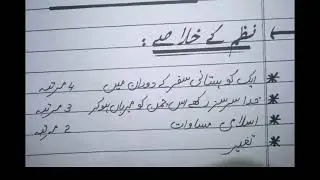 نظم کے خلاصے :
* ایک کوہستانی سفر کے دوران میں 4 مرتبہ
* خدا سرسبز رکھے اس چمن کو مہرباں ہوکر 3 مرتبہ
* اسلامی مساوات 2 مرتبہ
* تغیر